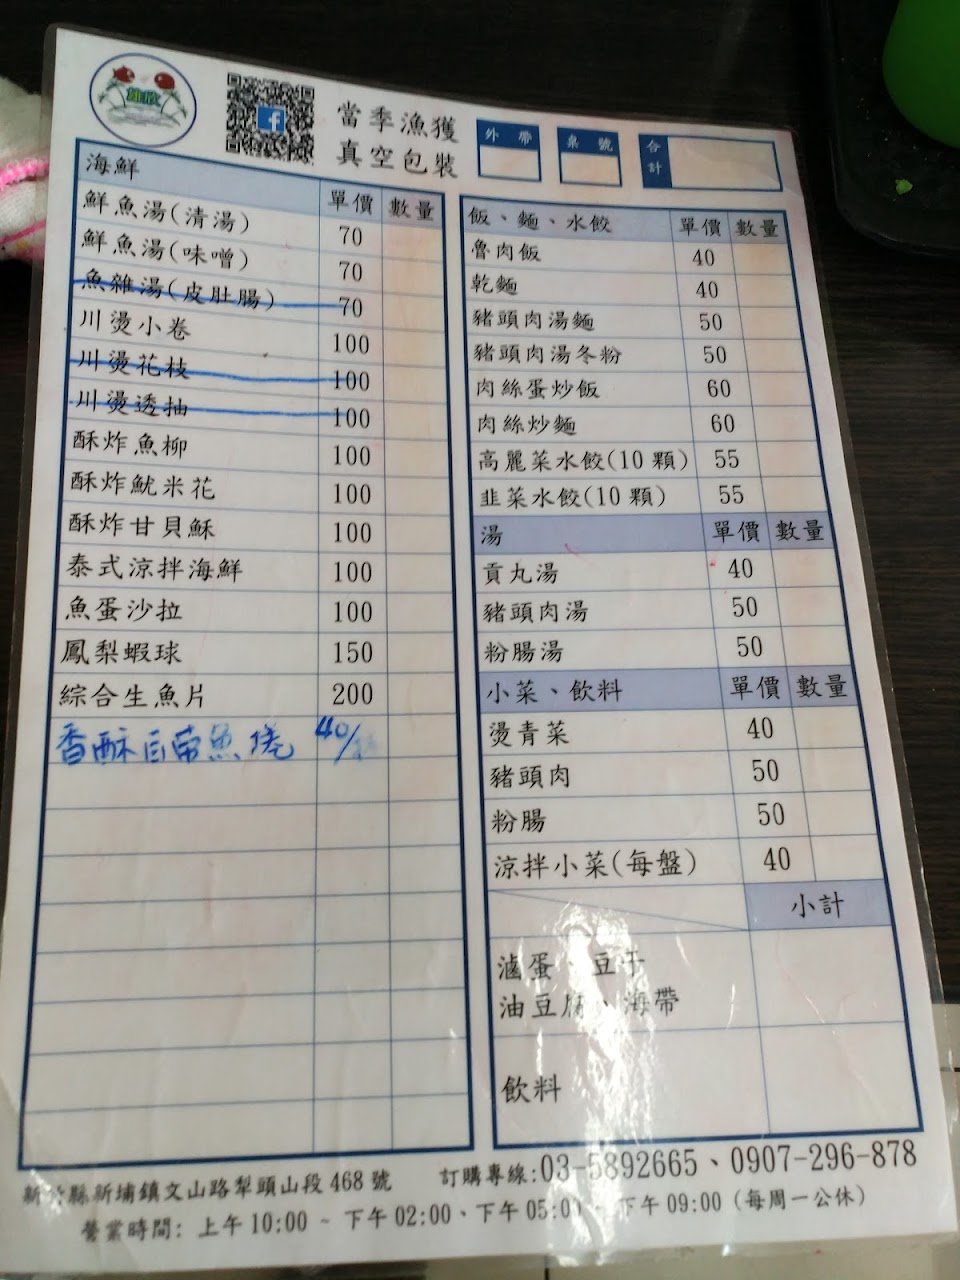 雄欣
當季漁獲
真空包裝
外帶
桌號
合計
海鮮 單價 數量
鮮魚湯(清湯) 70
鮮魚湯(味噌) 70
魚雜湯(皮肚腸) 70
川燙小卷 100
川燙花枝 100
川燙透抽 100
酥炸魚柳 100
酥炸魷米花 100
酥炸甘貝酥 100
泰式涼拌海鮮 100
魚蛋沙拉 100
鳳梨蝦球 150
綜合生魚片 200
香酥白帶魚 40/
飯、麵、水餃 單價 數量
魯肉飯 40
乾麵 40
豬頭肉湯麵 50
豬頭肉湯冬粉 50
肉絲蛋炒飯 60
肉絲炒麵 60
高麗菜水餃(10 顆) 55
韭菜水餃(10 顆) 55
湯 單價 數量
貢丸湯 40
豬頭肉湯 50
粉腸湯 50
小菜、飲料 單價 數量
燙青菜 40
豬頭肉 50
粉腸 50
涼拌小菜(每盤) 40
小計
滷蛋、豆干
油豆腐、海帶
飲料
新竹縣新埔鎮文山路犁頭山段 468 號 訂購專線:03-5892665、0907-296-878
營業時間: 上午 10:00 ~ 下午 02:00、下午 05:00 ~ 下午 09:00 (每周一公休)